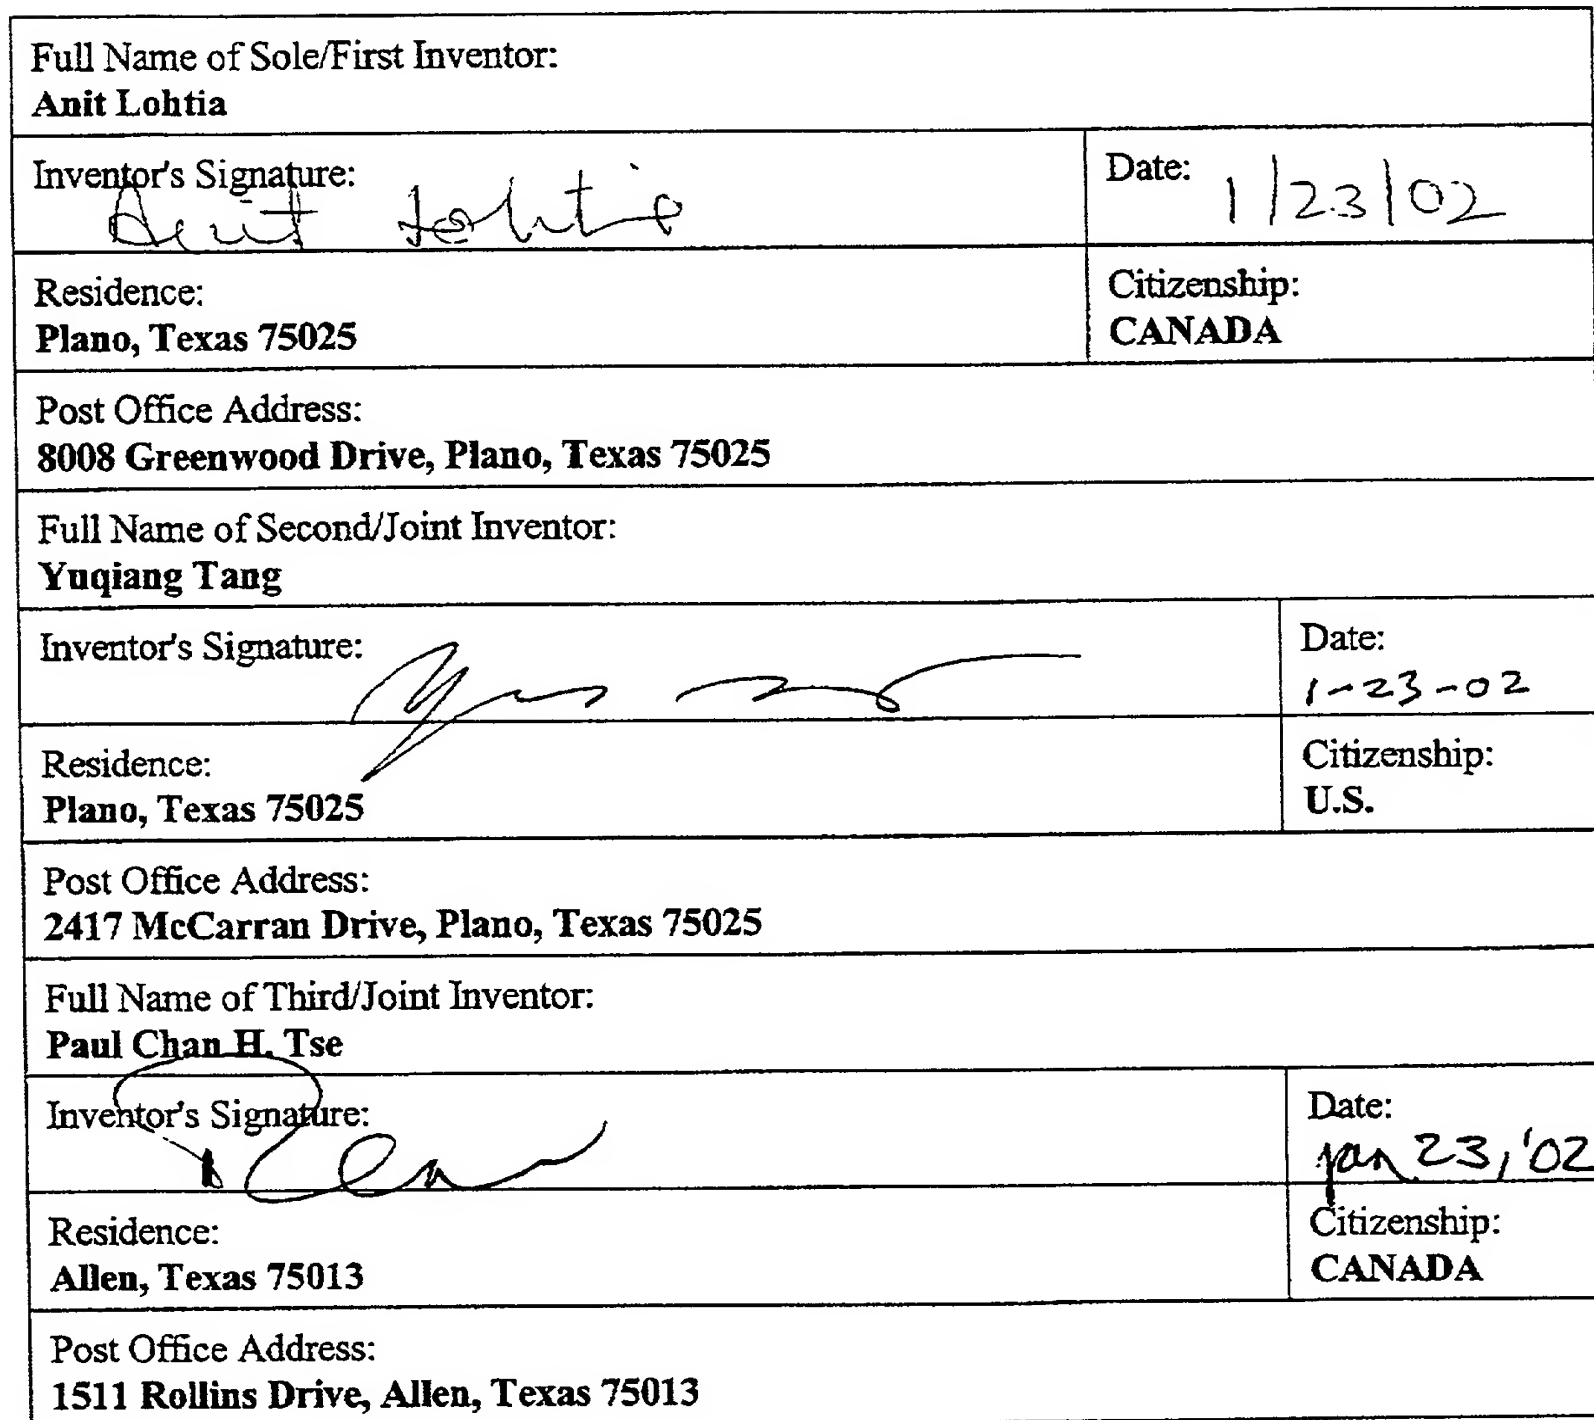 Full Name of Sole/First Inventor:
Anit Lohtia
Inventor's Signature:
Anit Lohtia
Date:
1/23/02
Residence:
Plano, Texas 75025
Citizenship:
CANADA
Post Office Address:
8008 Greenwood Drive, Plano, Texas 75025
Full Name of Second/Joint Inventor:
Yuqiang Tang
Inventor's Signature:
Date:
1-23-02
Residence:
Plano, Texas 75025
Citizenship:
U.S.
Post Office Address:
2417 McCarran Drive, Plano, Texas 75025
Full Name of Third/Joint Inventor:
Paul Chan H. Tse
Inventor's Signature:
Date:
Jan 23, '02
Residence:
Allen, Texas 75013
Citizenship:
CANADA
Post Office Address:
1511 Rollins Drive, Allen, Texas 75013